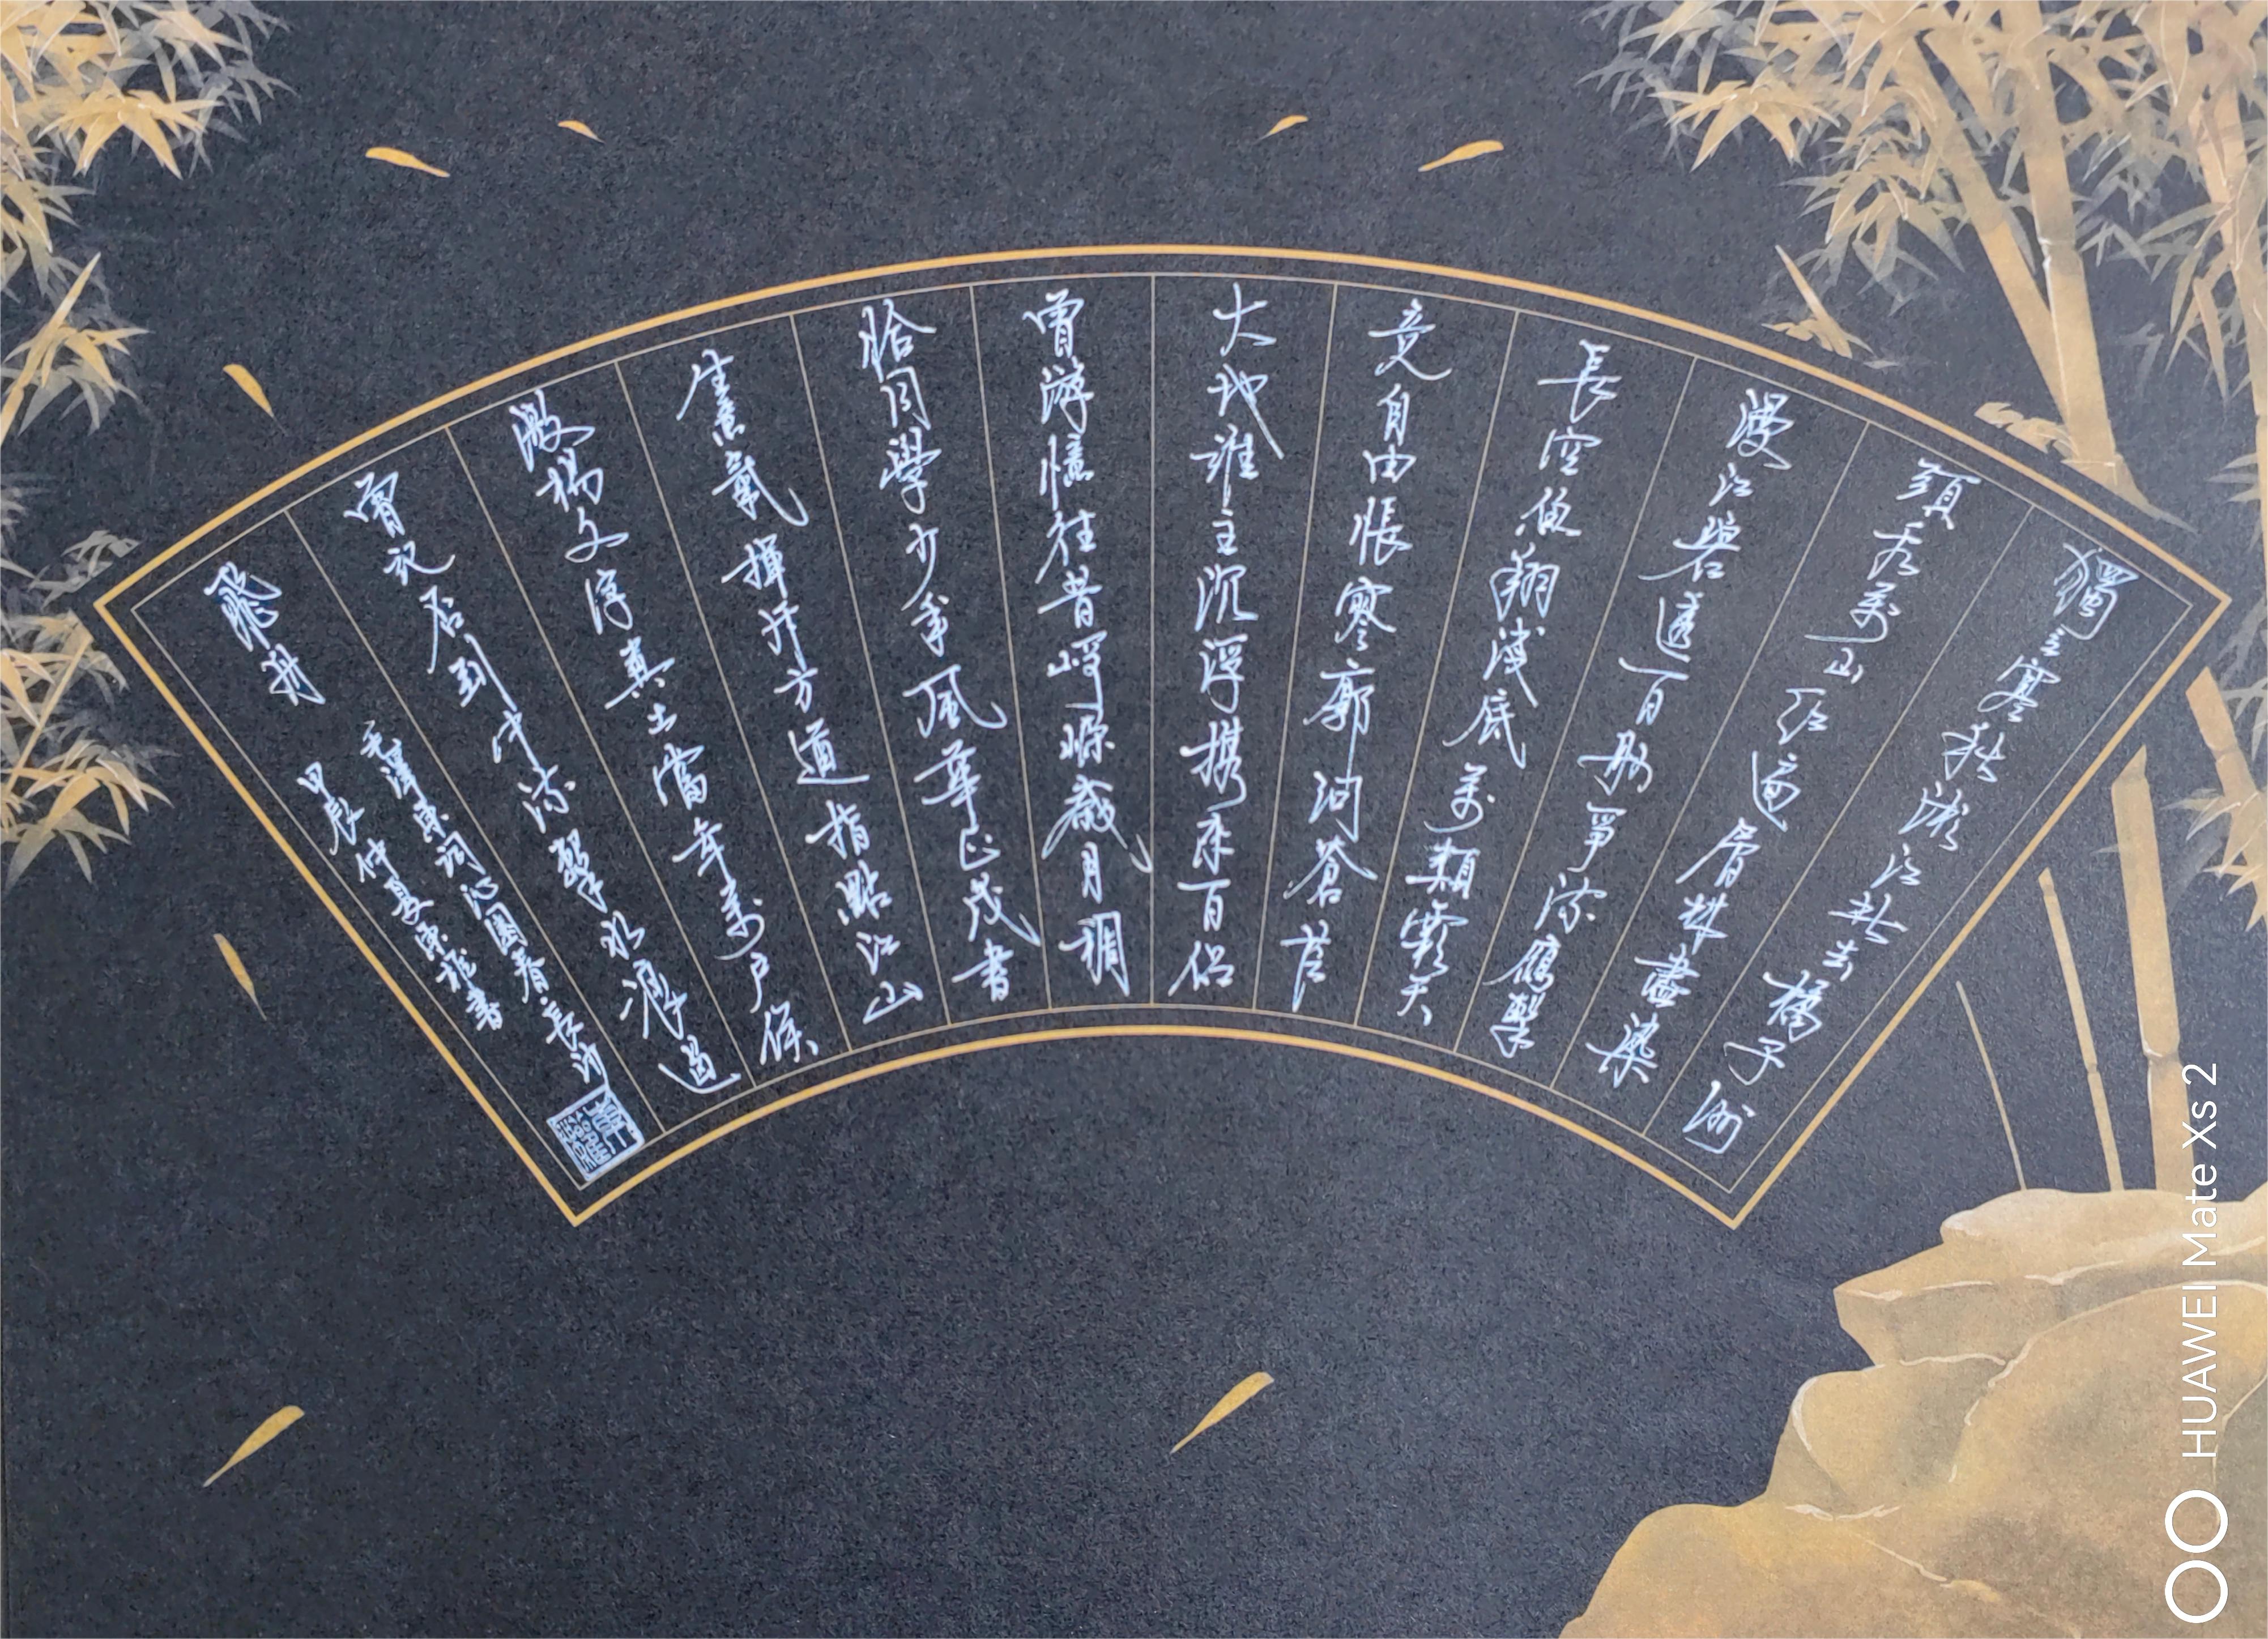 獨立寒秋湘江北去橘子洲
頭看萬山紅遍層林盡染
漫江碧透百舸爭流鷹擊
長空魚翔淺底萬類霜天
竞自由悵寥廓問蒼茫
大地誰主沉浮携來百侶
曾游憶往昔崢嶸歲月稠
恰同學少年風華正茂書
生意氣揮斥方遒指點江山
激揚文字糞土當年萬戶侯
曾記否到中流擊水浪遏
飛舟
毛澤東詞沁園春長沙
甲辰仲夏書
HUAWEI Mate Xs 2